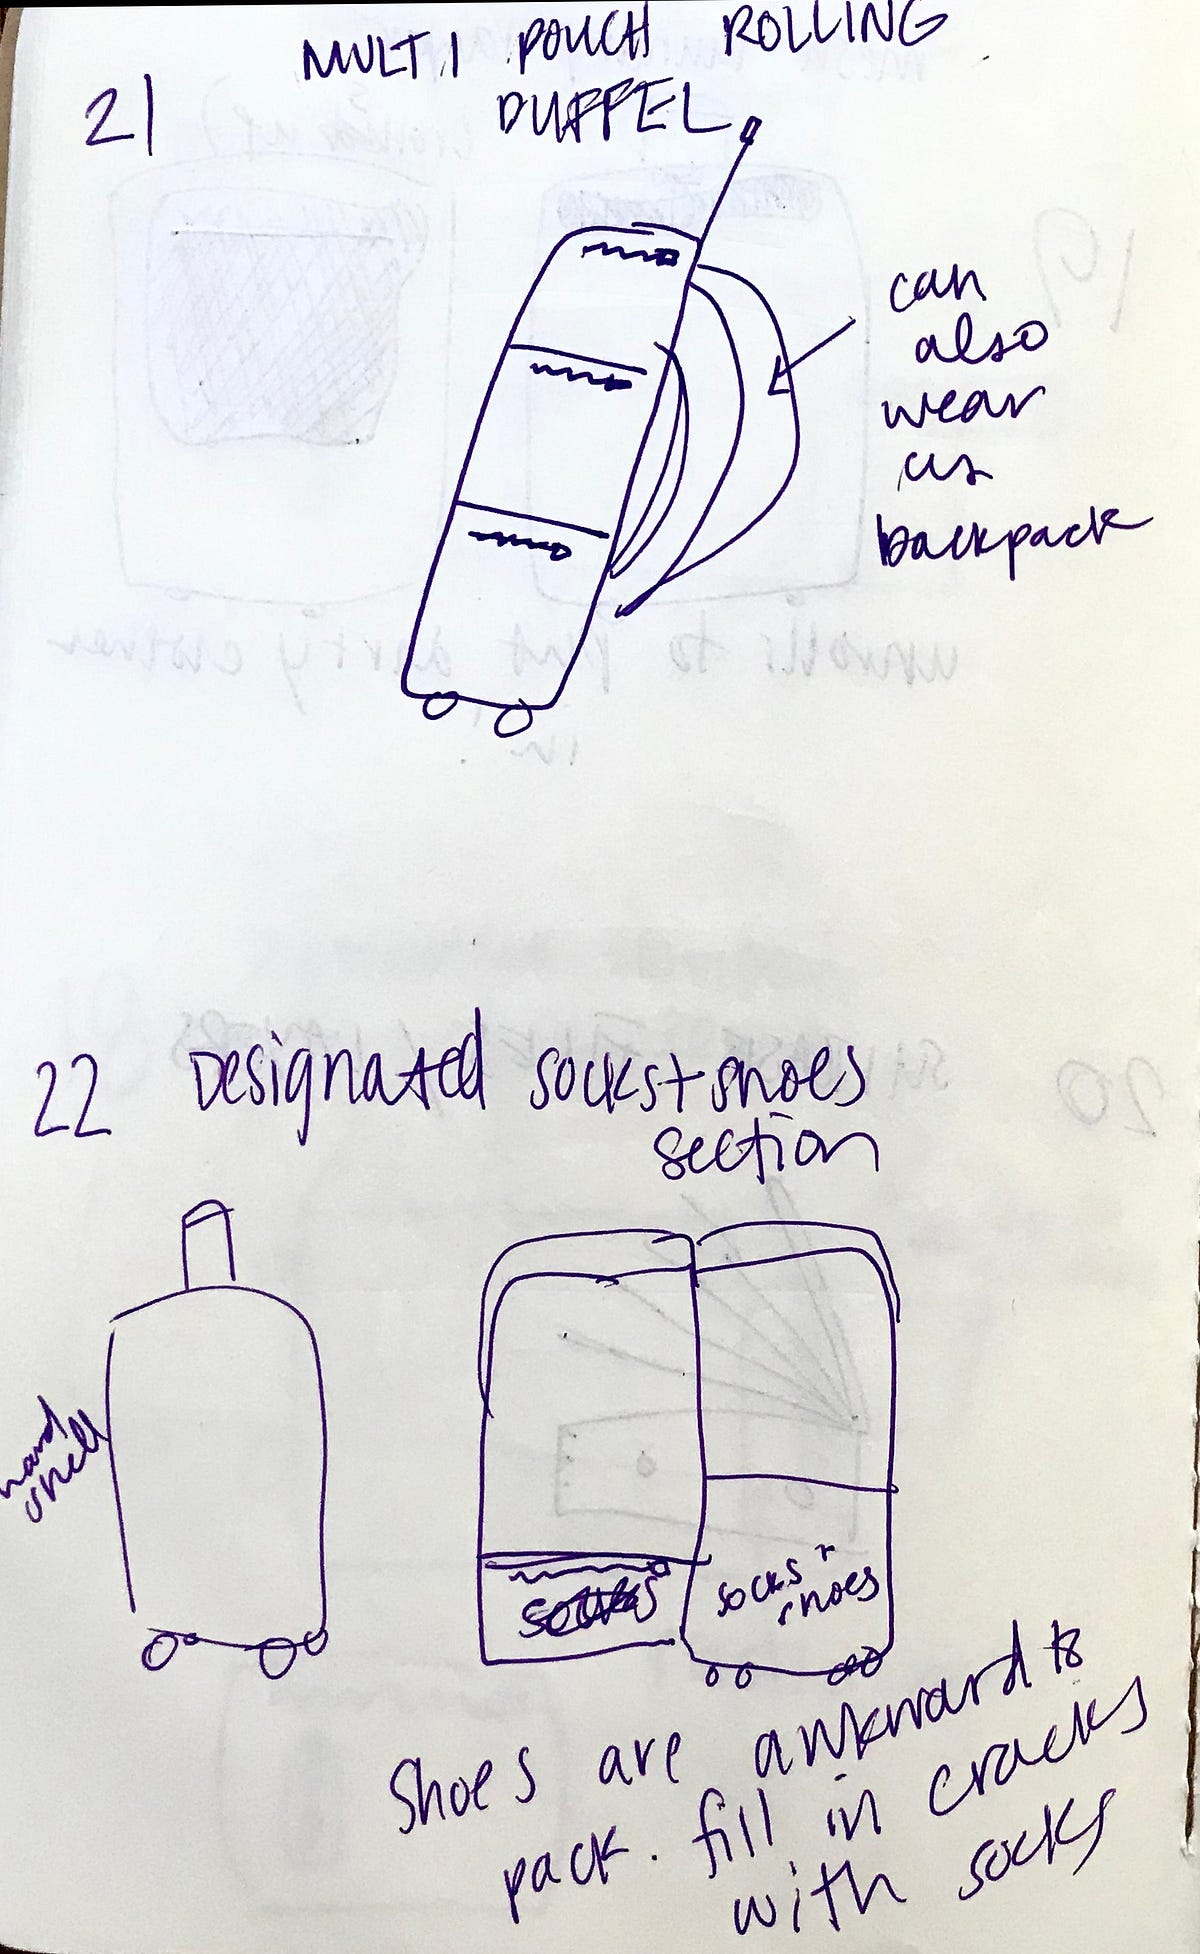 21
MULTI POUCH ROLLING
DUFFEL
can
also
wear
as
backpack
22 Designated socks+shoes
section
hard
shell
socks
socks +
shoes
Shoes are awkward to
pack. fill in cracks
with socks